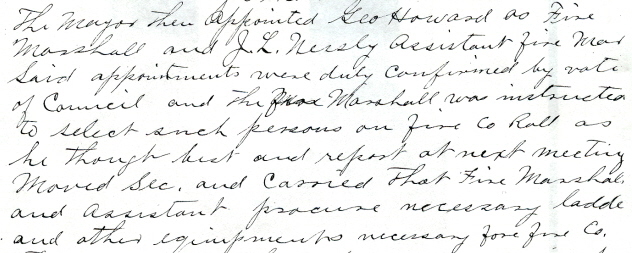 The Mayor then appointed Geo Howard as Fire
Marshall and J.L. Nersly Assistant fire Mar
Said appointments were duty confirmed by vote
of Council and the Marshall was instructed
to select such persons on fire Co Roll as
he thought best and report at next meeting
Moved Sec. and Carried That Fire Marshal
and Assistant procure necessary ladde
and other equipments necessary fore fire Co.